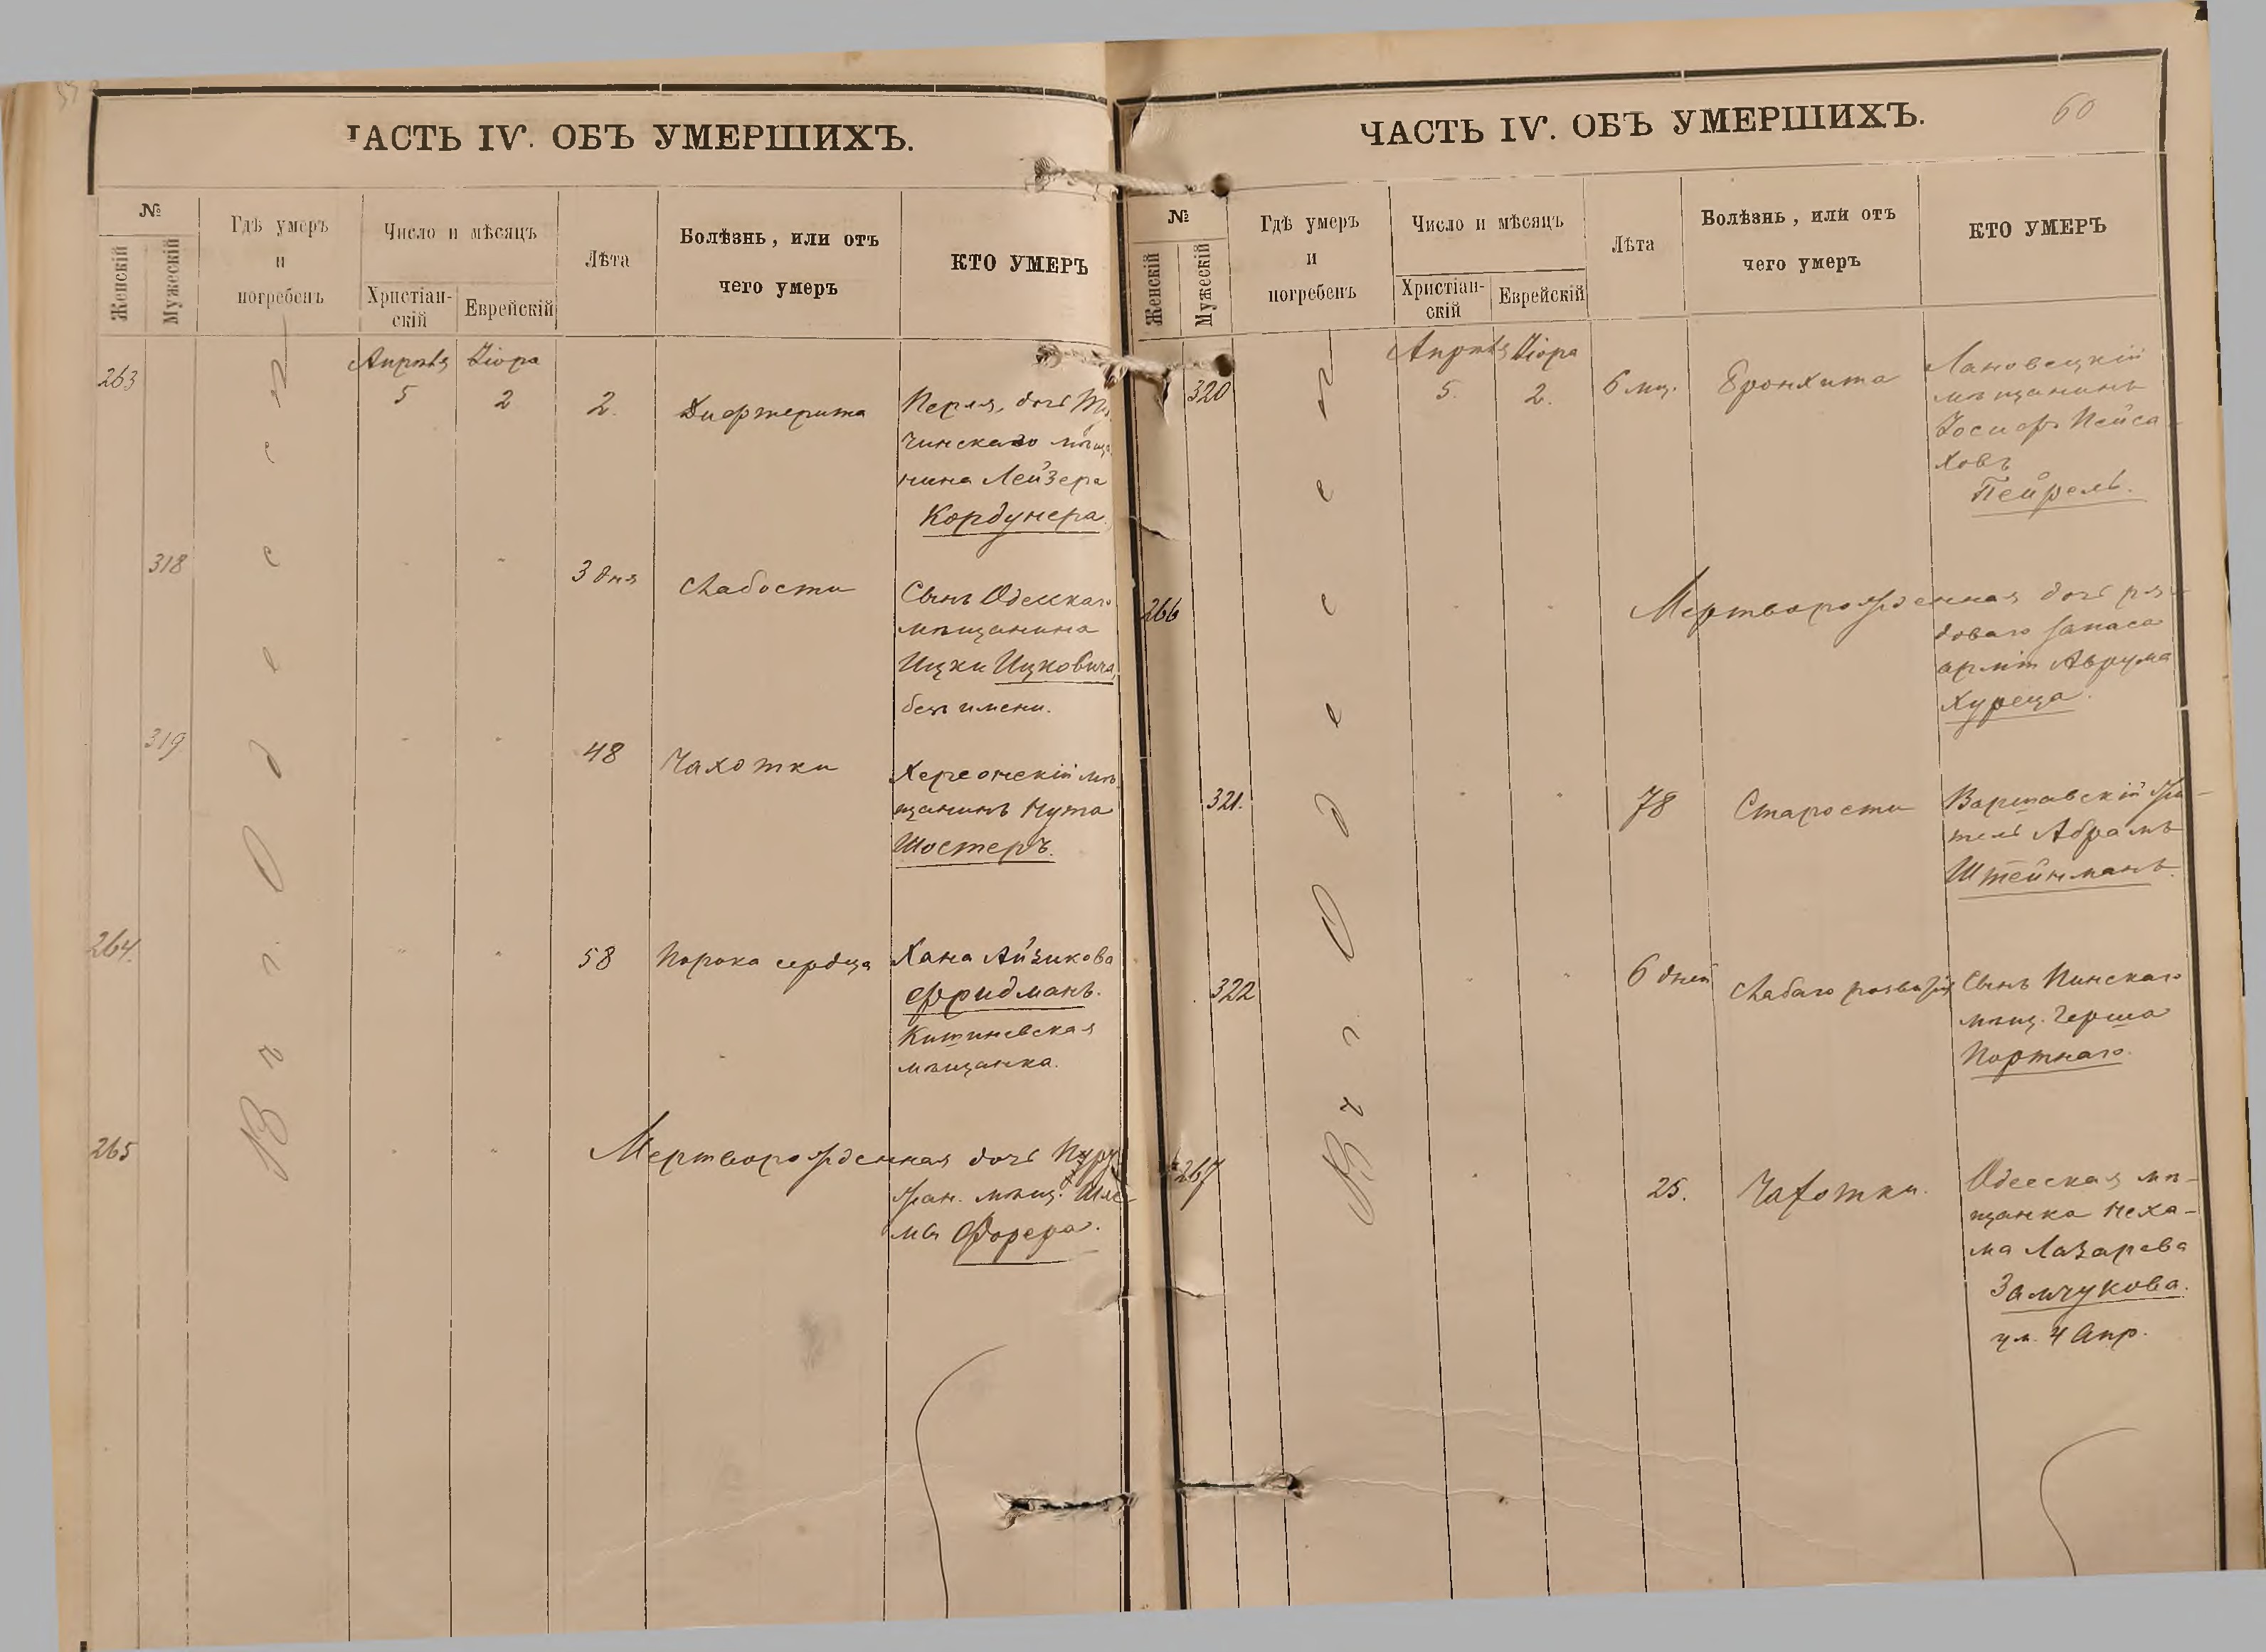 ЧАСТЬ IV. ОБЪ УМЕРШИХЪ.
№
Женскій
Мужескій
Гдѣ умеръ
и
погребенъ
Число и мѣсяцъ
Христіан-
скій
Еврейскій
Лѣта
Болѣзнь, или отъ
чего умеръ
КТО УМЕРЪ
Въ г. Одессѣ
Апрѣля Iіора
263 5 2 2. Дифтерита Перля, дочь
чинскаго мѣща
нина Лейзера
Кордунера.
318 3 дня Слабости Сынъ Одесскаго
мѣщанина
Ицки Ицковича,
безъ имени.
319 48 Чахотки Херсонскій мѣ
щанинъ Нута
Шостеръ.
264. 58 Порока сердца Хана Айзикова
Фридманъ.
Кишиневская
мѣщанка.
265 Мертворожденная дочь
гран. мѣщ. Шле
мы Форера.
ЧАСТЬ IV. ОБЪ УМЕРШИХЪ.
60
№
Женскій
Мужескій
Гдѣ умеръ
и
погребенъ
Число и мѣсяцъ
Христіан-
скій
Еврейскій
Лѣта
Болѣзнь, или отъ
чего умеръ
КТО УМЕРЪ
Въ г. Одессѣ
Апрѣля Iіора
320 5. 2. 6 мц. Бронхита Лановецкій
мѣщанинъ
Іосифъ Пейса-
ховъ
Пейрель.
266 Мертворожденная дочь ря-
доваго запаса
арміи Аврума
Хуреца.
321. 78 Старости Варшавскій жи-
тель Абрамъ
Штейнманъ.
322 6 дней Слабаго развитія Сынъ Пинскаго
мѣщ. Герша
Портнаго.
267 25. Чахотки. Одесская мѣ-
щанка Неха-
ма Лазарева
Замчукова.
ум. 4 Апр.